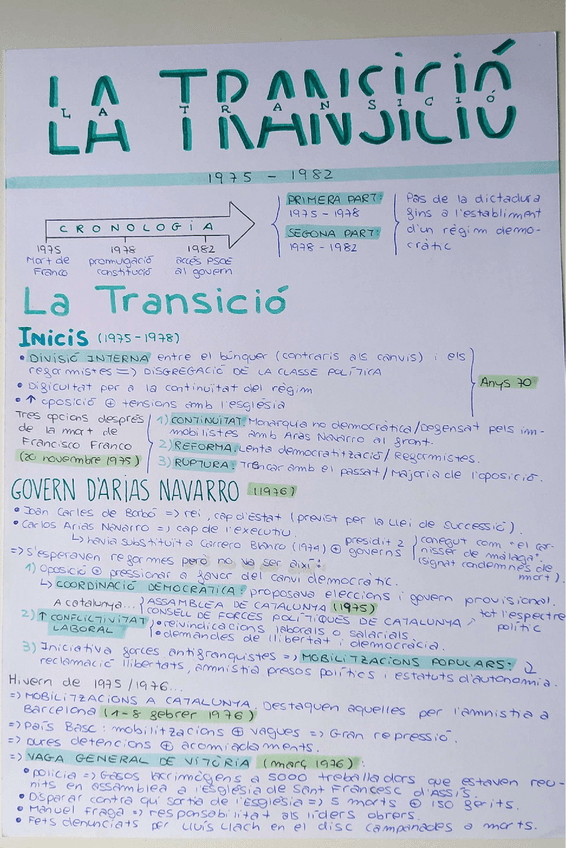 LA TRANSICIÓ
LA TRANSICIÓ
1975 - 1982
CRONOLOGIA
1975
Mort de
Franco
1978
promulgació
constitució
1982
accés PSOE
al govern
PRIMERA PART:
1975 - 1978
SEGONA PART:
1978 - 1982
Pas de la dictadura
fins a l'establiment
d'un règim demo-
cràtic
La Transició
Inicis (1975-1978)
• DIVISIÓ INTERNA entre el búnquer (contraris als canvis) i els
reformistes => DISGREGACIÓ DE LA CLASSE POLÍTICA
• Dificultat per a la continuïtat del règim
• ↑ oposició ⊕ tensions amb l'església
Anys 70
Tres opcions després
de la mort de
Francisco Franco
(20 novembre 1975)
1) CONTINUITAT: Monarquia no democràtica/Defensat pels im-
mobilistes amb Arias Navarro al front.
2) REFORMA: Lenta democratització/Reformistes.
3) RUPTURA: Trencar amb el passat/Majoria de l'oposició.
GOVERN D'ARIAS NAVARRO (1976)
• Joan Carles de Borbó => rei, cap d'Estat (previst per la Llei de Successió).
• Carlos Arias Navarro => cap de l'executiu.
↳ havia substituït a Carrero Blanco (1974) ⊕ presidit 2
governs
conegut com "el car-
nisser de màlaga".
(signat condemnes de
mort).
=> s'esperaven reformes però no va ser així:
1) Oposició ⊕ pressionar a favor del canvi democràtic.
↳ COORDINACIÓ DEMOCRÀTICA: proposava eleccions i govern provisional.
A catalunya... ASSAMBLEA DE CATALUNYA (1975)
CONSELL DE FORCES POLÍTIQUES DE CATALUNYA
tot l'espectre
polític
2) ↑ CONFLICTIVITAT
LABORAL
• reivindicacions laborals o salarials.
• demandes de llibertat i democràcia.
3) Iniciativa forces antifranquistes => MOBILITZACIONS POPULARS:
reclamació llibertats, amnistia presos polítics i estatuts d'autonomia.
Hivern de 1975/1976...
=> MOBILITZACIONS A CATALUNYA. Destaquen aquelles per l'amnistia a
Barcelona (1-8 febrer 1976)
=> País Basc: mobilitzacions ⊕ vagues => Gran repressió.
=> dures detencions ⊕ acomiadaments.
=> VAGA GENERAL DE VITÒRIA (març 1976):
• policia => Gasos lacrimògens a 5000 treballadors que estaven reu-
nits en assamblea a l'Església de Sant Francesc d'Assís.
• Disparar contra qui sortia de l'Església => 5 morts ⊕ 150 ferits.
• Manuel Fraga => responsabilitat als líders obrers.
• Fets denunciats per Lluís Llach en el disc campanades a morts.